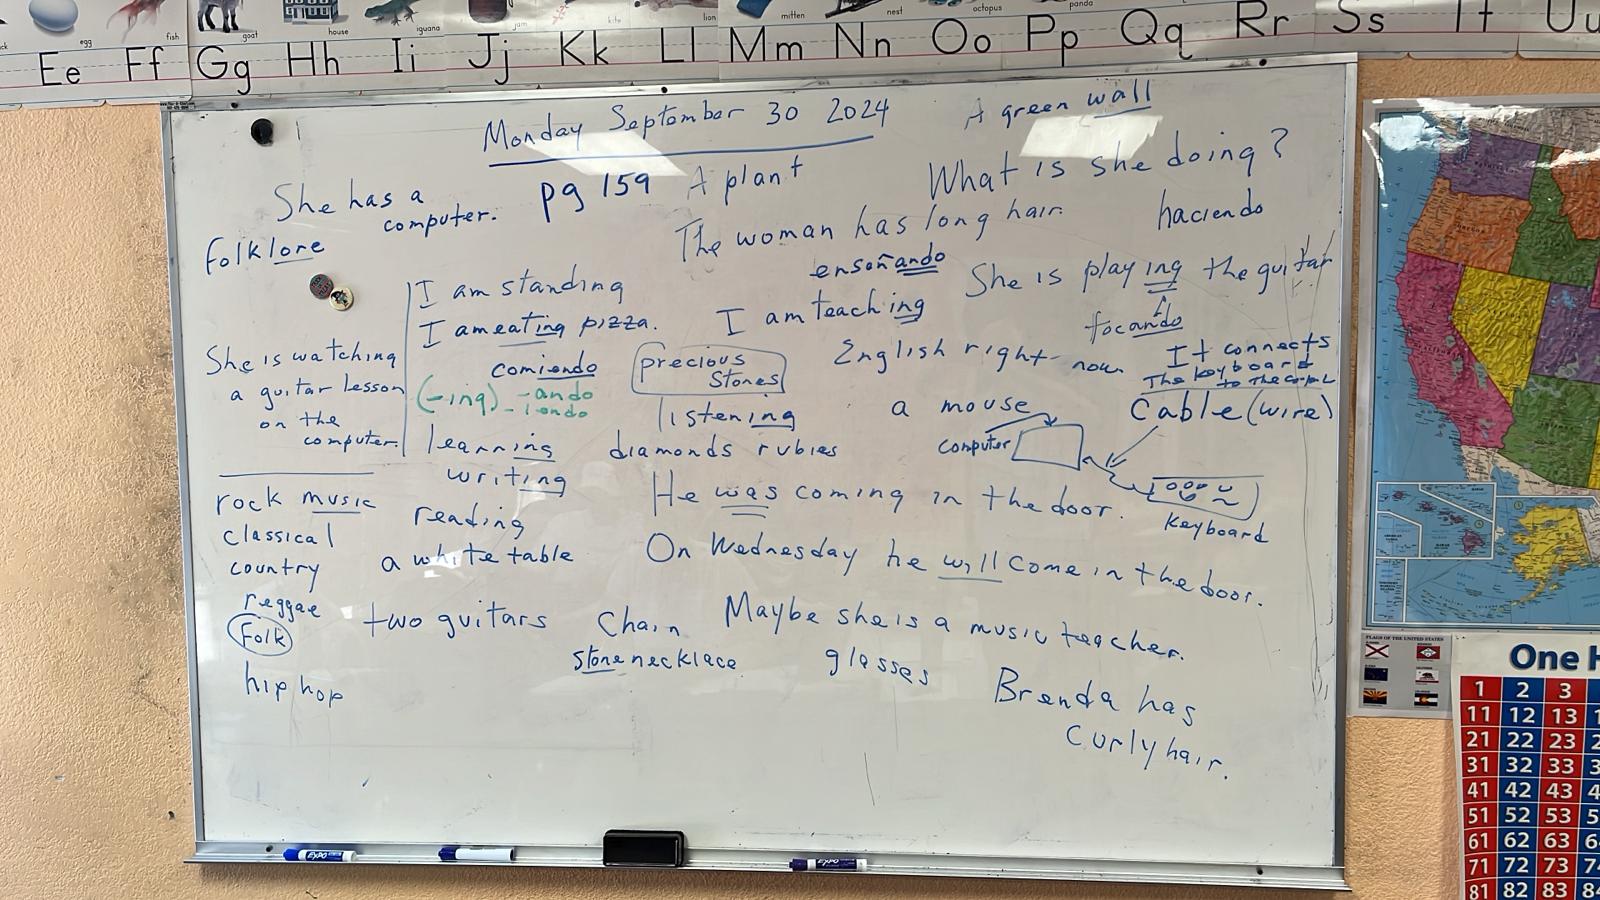 egg
fish
goat
house
iguana
jam
kite
lion
mitten
nest
octopus
panda
Ee Ff Gg Hh Ii Jj Kk Ll Mm Nn Oo Pp Qq Rr Ss Tt Uu
Monday September 30 2024
A green wall
She has a
computer.
pg 159
A plant
What is she doing?
haciendo
folklore
The woman has long hair.
enseñando
She is playing the guitar
tocando
I am standing
I am eating pizza.
comiendo
(-ing) -ando
-iendo
I am teaching
English right now
She is watching
a guitar lesson
on the
computer.
precious
stones
listening
diamonds rubies
learning
writing
reading
a white table
a mouse
computer
It connects
The keyboard
to the
Cable (wire)
keyboard
rock music
classical
country
reggae
Folk
hip hop
He was coming in the door.
On Wednesday he will come in the door.
two guitars
Chain
stone necklace
Maybe she is a music teacher.
glasses
Brenda has
curly hair.
EXPO
EXPO
FLAGS OF THE UNITED STATES
One H
1 2 3
11 12 13 1
21 22 23 2
31 32 33 3
41 42 43 4
51 52 53 5
61 62 63 6
71 72 73 7
81 82 83 8